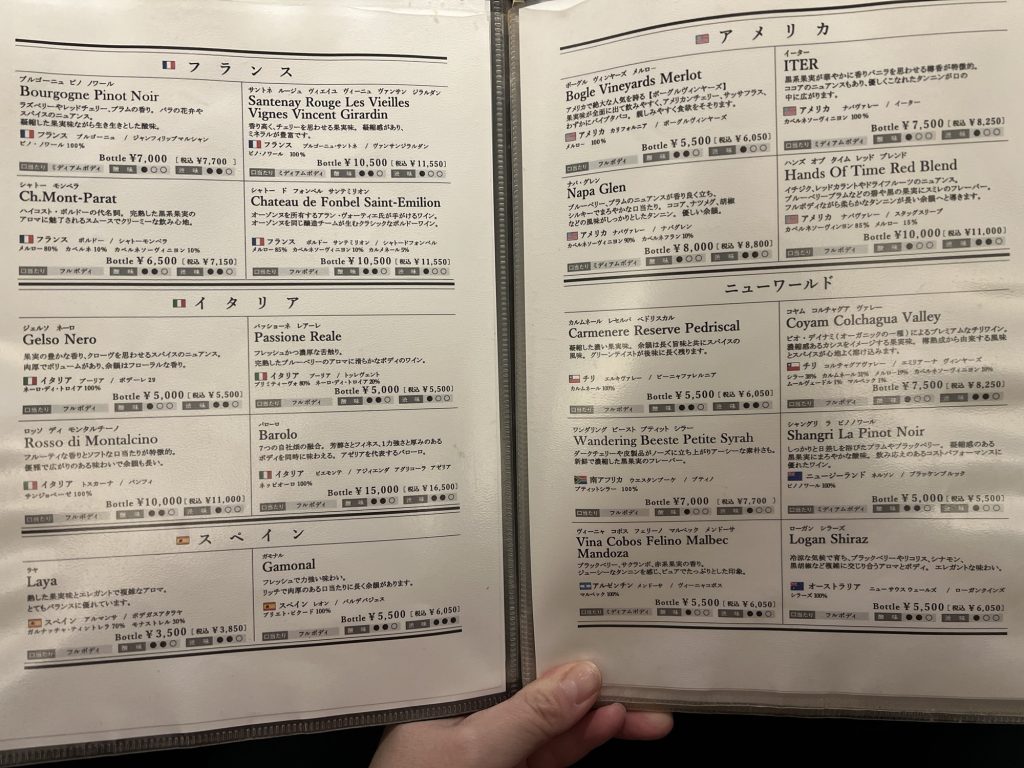 フランス
ブルゴーニュ ピノ ノワール
Bourgogne Pinot Noir
ラズベリーやレッドチェリー、プラムの香り。バラの花弁や
スパイスのニュアンス。
凝縮した果実味ながら生き生きとした酸味。
フランス ブルゴーニュ / ジャンフィリップマルシャン
ピノ・ノワール 100%
Bottle ¥7,000 [税込 ¥7,700 ]
口当たり ミディアムボディ 酸味 ●●○ 渋味 ●○○
サントネ ルージュ ヴィエイユ ヴィーニュ ヴァンサン ジラルダン
Santenay Rouge Les Vieilles
Vignes Vincent Girardin
香り高く、チェリーを思わせる果実味。凝縮感があり、
ミネラルが豊富です。
フランス ブルゴーニュ・サントネ / ヴァンサンジラルダン
ピノ・ノワール 100%
Bottle ¥10,500 [税込 ¥11,550]
口当たり ミディアムボディ 酸味 ●●○ 渋味 ●○○
シャトー モンペラ
Ch.Mont-Parat
ハイコスト・ボルドーの代名詞。完熟した黒系果実の
アロマに魅了されるスムースでクリーミーな飲み心地。
フランス ボルドー / シャトーモンペラ
メルロー80% カベルネ10% カベルネソーヴィニヨン10%
Bottle ¥6,500 [税込 ¥7,150]
口当たり フルボディ 酸味 ●○○ 渋味 ●●○
シャトー ド フォンベル サンテミリオン
Chateau de Fonbel Saint-Emilion
オーゾンヌを所有するアラン・ヴォーティエ氏が手がけるワイン。
オーゾンヌを同じ醸造チームが生むクラシックなボルドーワイン。
フランス ボルドー サンテミリオン / シャトードフォンベル
メルロー85% カベルネソーヴィニヨン10% カルメネール5%
Bottle ¥10,500 [税込 ¥11,550]
口当たり フルボディ 酸味 ●○○ 渋味 ●●○
イタリア
ジェルソ ネーロ
Gelso Nero
果実の豊かな香り、クローヴを思わせるスパイスのニュアンス。
肉厚でボリュームがあり、余韻はフローラルな香り。
イタリア プーリア / ポデーレ 29
ネーロ・ディ・トロイア 100%
Bottle ¥5,000 [税込 ¥5,500]
口当たり フルボディ 酸味 ●●○ 渋味 ●●○
パッショーネ レアーレ
Passione Reale
フレッシュかつ濃厚な舌触り。
完熟したブルーベリーのアロマに滑らかなボディのワイン。
イタリア プーリア / トッレヴェント
プリミティーヴォ 80% ネーロ・ディ・トロイア 20%
Bottle ¥5,000 [税込 ¥5,500]
口当たり フルボディ 酸味 ●●○ 渋味 ●●○
ロッソ ディ モンタルチーノ
Rosso di Montalcino
フルーティな香りとソフトな口当たりが特徴的。
優雅で広がりのある味わいで余韻も長い。
イタリア トスカーナ / バンフィ
サンジョベーゼ 100%
Bottle ¥10,000[税込 ¥11,000]
口当たり フルボディ 酸味 ●●○ 渋味 ●●○
バローロ
Barolo
7つの自社畑の融合。芳醇さとフィネス、1力強さと厚みのある
ボディを同時に味わえる。アゼリアを代表するバローロ。
イタリア ピエモンテ / アジィエンダ アグリコーラ アゼリア
ネッビオーロ 100%
Bottle ¥15,000 [税込 ¥16,500]
口当たり フルボディ 酸味 ●●○ 渋味 ●●○
スペイン
ラヤ
Laya
熟した果実味とエレガントで複雑なアロマ。
とてもバランスに優れています。
スペイン アルマンサ / ボデガスアタラヤ
ガルナッチャ・ティントレラ 70% モナストレル 30%
Bottle ¥3,500 [税込 ¥3,850]
口当たり フルボディ 酸味 ●●○ 渋味 ●●○
ガモナル
Gamonal
フレッシュで力強い味わい。
リッチで肉厚のある口当たりに長く余韻があります。
スペイン レオン / パルデバジェス
プリエト・ピクード 100%
Bottle ¥5,500 [税込 ¥6,050]
口当たり フルボディ 酸味 ●●○ 渋味 ●●●
アメリカ
ボーグル ヴィンヤーズ メルロー
Bogle Vineyards Merlot
アメリカで絶大な人気を誇る【ボーグルヴィンヤーズ】
果実味が全面に出て飲みやすく、アメリカンチェリー、サッサフラス、
わずかにパイプタバコ。親しみやすく食欲をそそります。
アメリカ カリフォルニア / ボーグルヴィンヤーズ
メルロー 100%
Bottle ¥5,500 [税込 ¥6,050]
口当たり フルボディ 酸味 ●○○ 渋味 ●●○
イーター
ITER
黒系果実が華やかに香りバニラを思わせる樽香が特徴的。
ココアのニュアンスもあり、優しくこなれたタンニンが口の
中に広がります。
アメリカ ナパヴァレー / イーター
カベルネソーヴィニヨン 100%
Bottle ¥7,500 [税込 ¥8,250]
口当たり フルボディ 酸味 ●○○ 渋味 ●●○
ナパ・グレン
Napa Glen
ブルーベリー、プラムのニュアンスが香り良く立ち、
シルキーでまろやかな口当たり。ココア、ナツメグ、胡椒
などの風味がしっかりとしたタンニン。優しい余韻。
アメリカ ナパヴァレー / ナパグレン
カベルネソーヴィニヨン 90% カベルネフラン 10%
Bottle ¥8,000 [税込 ¥8,800]
口当たり ミディアムボディ 酸味 ●○○ 渋味 ●●○
ハンズ オブ タイム レッド ブレンド
Hands Of Time Red Blend
イチジク、レッドカラントやドライフルーツのニュアンス。
ブルーベリープラムなどの碧や黒の果実にスミレのフレーバー。
フルボディながら柔らかなタンニンが長い余韻へと導きます。
アメリカ ナパヴァレー / スタッグスリープ
カベルネソーヴィニヨン 85% メルロー 15%
Bottle ¥10,000 [税込 ¥11,000]
口当たり フルボディ 酸味 ●○○ 渋味 ●●○
ニューワールド
カルムネール レセルバ ペドリスカル
Carmenere Reserve Pedriscal
凝縮した濃い果実味。余韻は長く旨味と共にスパイスの
風味。グリーンテイストが後味に長く残ります。
チリ エルキヴァレー / ビーニャファレルニア
カルムネール 100%
Bottle ¥5,500 [税込 ¥6,050]
口当たり フルボディ 酸味 ●○○ 渋味 ●●○
コヤム コルチャグア ヴァレー
Coyam Colchagua Valley
ビオ・デイナミ(オーガニックの一種)によるプレミアムなチリワイン。
濃縮感あるカシスをイメージする果実味。樽熟成から由来する風味
とスパイスが心地よく溶け込みます。
チリ コルチャグアヴァレー / エミリアーナ ヴィンヤーズ
Bottle ¥7,500 [税込 ¥8,250]
口当たり フルボディ 酸味 ●●○ 渋味 ●●○
ワンダリング ビースト プティット シラー
Wandering Beeste Petite Syrah
ダークチェリーや皮製品がノーズに立ち上がりアーシーな素朴さも。
新鮮で凝縮した黒果実のフレーバー。
南アフリカ ウエスタンケープ / ブティノ
プティットシラー 100%
Bottle ¥7,000 [税込 ¥7,700 ]
口当たり フルボディ 酸味 ●●○ 渋味 ●○○
シャングリ ラ ピノノワール
Shangri La Pinot Noir
しっかりと日照を浴びたプラムやブラックベリー。凝縮感のある
黒果実にまろやかな酸味。飲み応えのあるコストパフォーマンスに
優れたワイン。
ニュージーランド ネルソン / ブラッケンブルック
ピノノワール 100%
Bottle ¥5,000 [税込 ¥5,500]
口当たり ミディアムボディ 酸味 ●●○ 渋味 ●○○
ヴィーニャ コボス フェリーノ マルベック メンドーサ
Vina Cobos Felino Malbec
Mandoza
ブラックベリー、サクランボ、赤系果実の香り。
ジューシーなタンニンを感じ、ピュアでたっぷりとした印象。
アルゼンチン メンドーサ / ヴィーニャコボス
マルベック 100%
Bottle ¥5,500 [税込 ¥6,050]
口当たり ミディアムボディ 酸味 ●●○ 渋味 ●●○
ローガン シラーズ
Logan Shiraz
冷涼な気候で育ち、ブラックベリーやリコリス、シナモン、
黒胡椒など複雑に交じり合うアロマとボディ。エレガントな味わい。
オーストラリア ニューサウスウェールズ / ローガンワインズ
シラーズ 100%
Bottle ¥5,500 [税込 ¥6,050]
口当たり フルボディ 酸味 ●●○ 渋味 ●●○